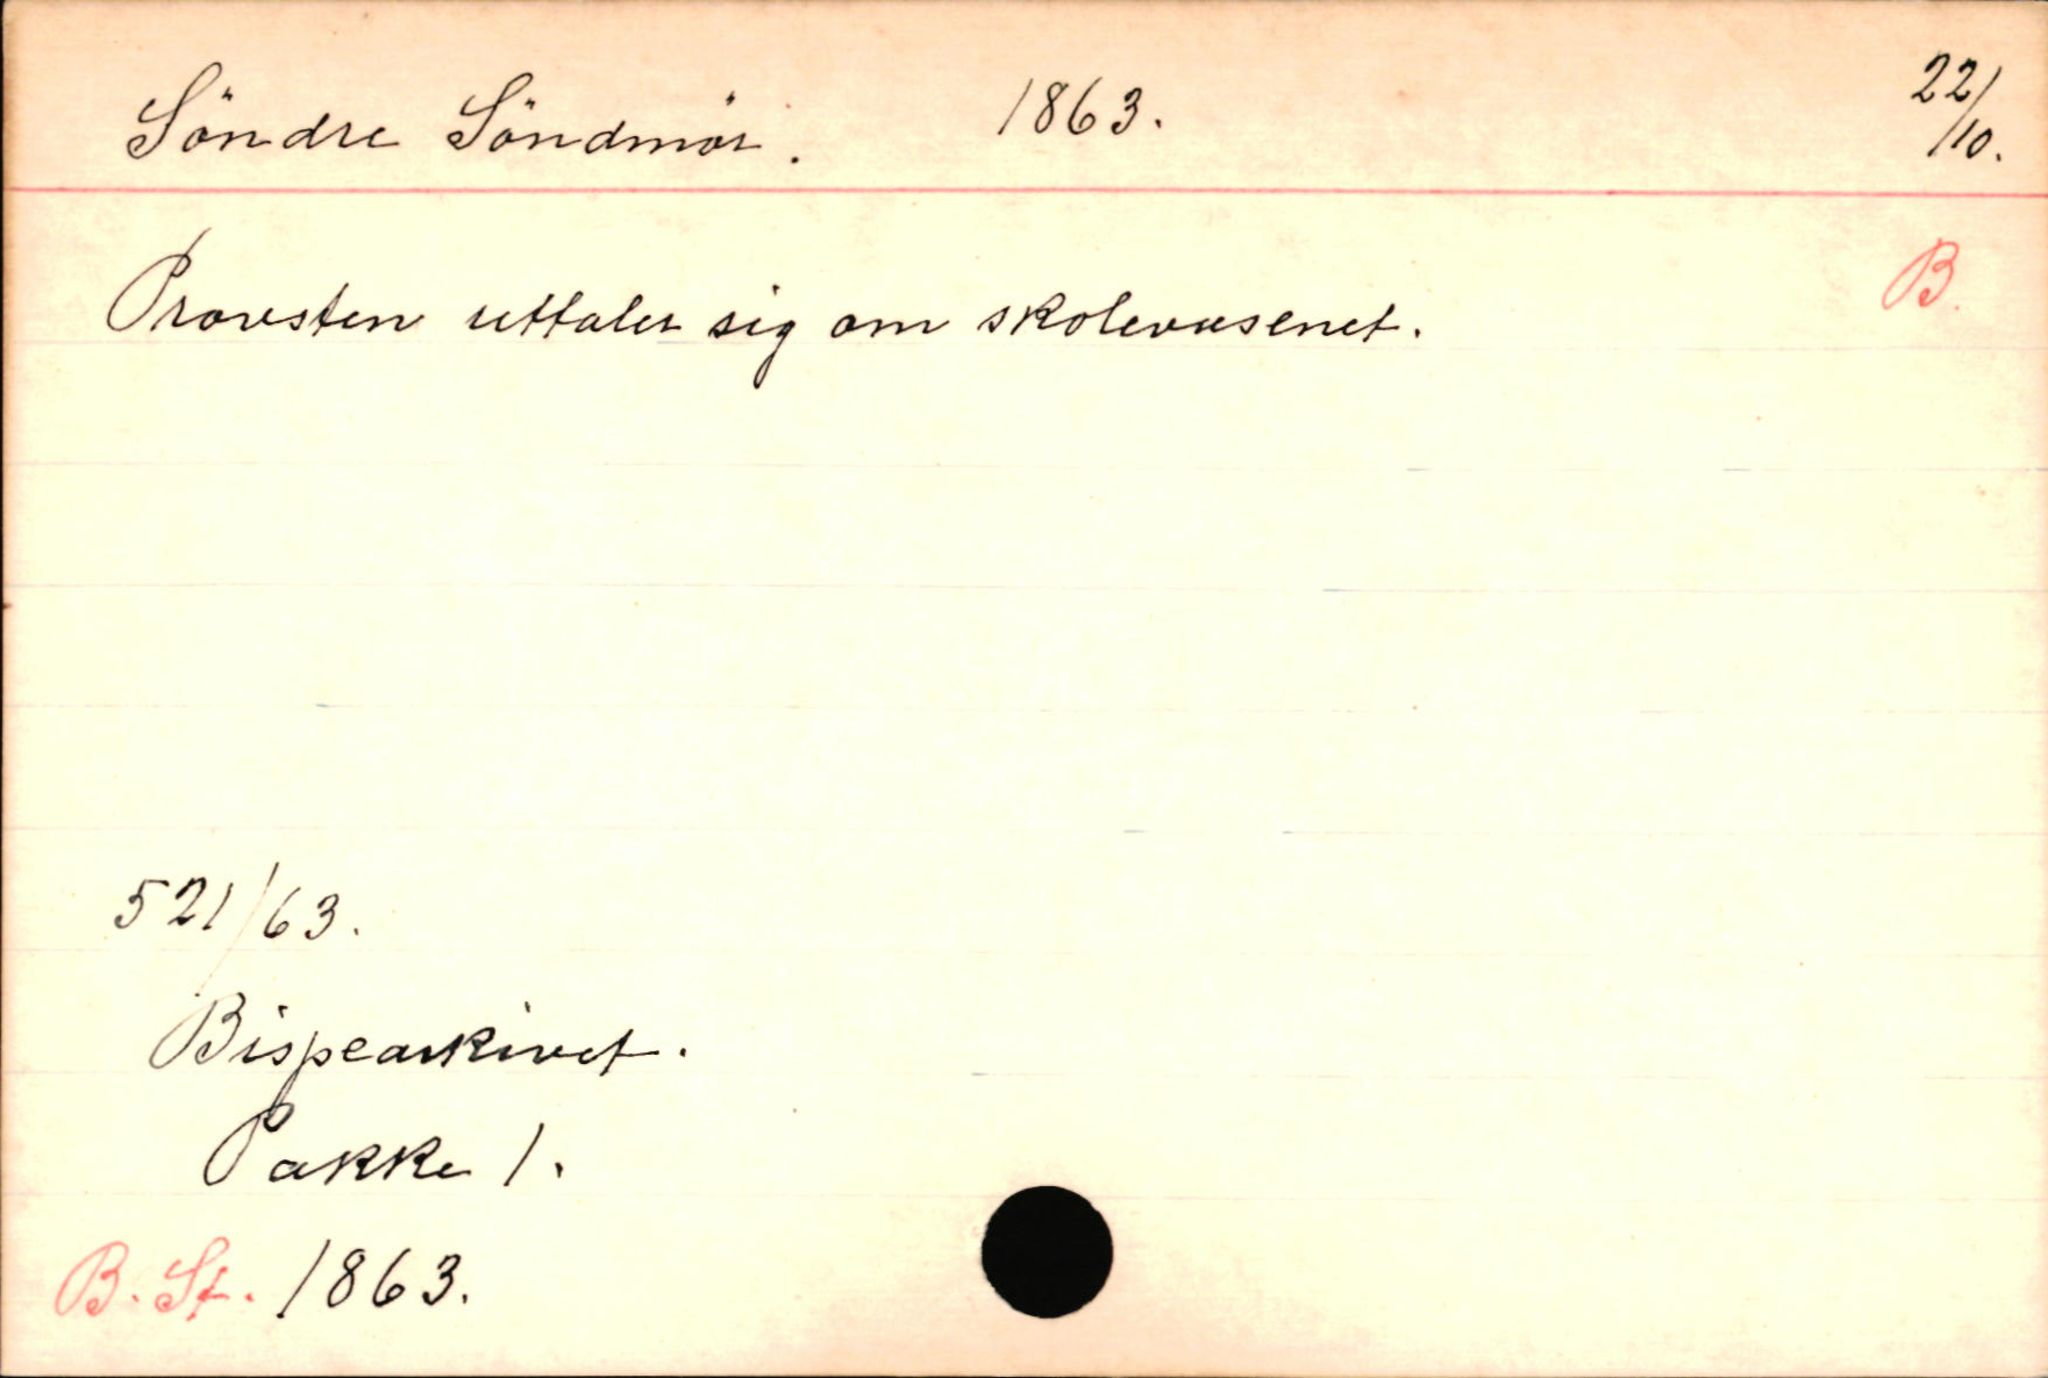 Söndre Söndmör. 1863. 22/10.
Provsten uttaler sig om skolevæsenet. B.
521/63.
Bispearkivet.
Pakke 1.
B. St. 1863.